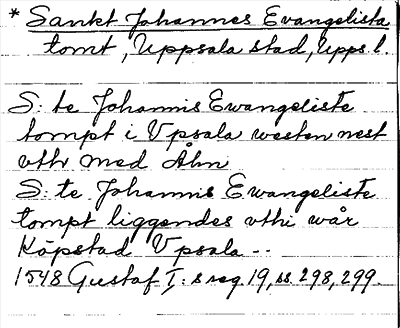 * Sankt Johannes Evangelista
tomt, Uppsala stad, Upps. l.
S: te Johannis Ewangeliste
tompt i Vpsala westen nest
vthr med Åhn
S: te Johannis Ewangeliste
tompt liggendes vthi wår
Köpstad Vpsala --
1548 Gustaf I: s reg. 19, ss. 298, 299.